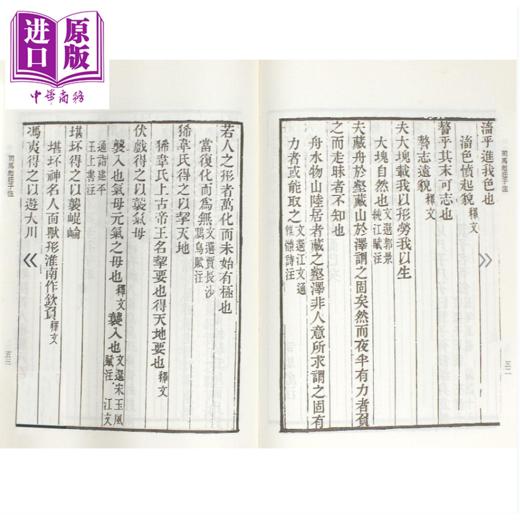 進口原版
中華商務
司馬彪莊子注
五二
滀乎進我色也
滀色憤起貌 釋文
謷乎其未可志也
謷志遠貌 釋文
夫大塊載我以形勞我以生
大塊自然也 文選郭景純江賦注
夫藏舟於壑藏山於澤謂之固矣然而夜半有力者負
之而走昧者不知也
舟水物山陸居者藏之壑澤非人意所求謂之固有
力者或能取之 文選江文通 詩注
若人之形者萬化而未始有極也
當復化而為無 文選賈長沙鵩鳥賦注
狶韋氏得之以挈天地
狶韋氏上古帝王名挈要也得天地要也 釋文
伏戲得之以襲氣母
襲入也氣母元氣之母也 釋文 襲入也 文選宋玉風賦注 江文
通詣建平王上書注
堪坏得之以襲崐崘
堪坏神名人面獸形淮南作欽負 釋文
馮夷得之以遊大川
司馬彪莊子注
五三